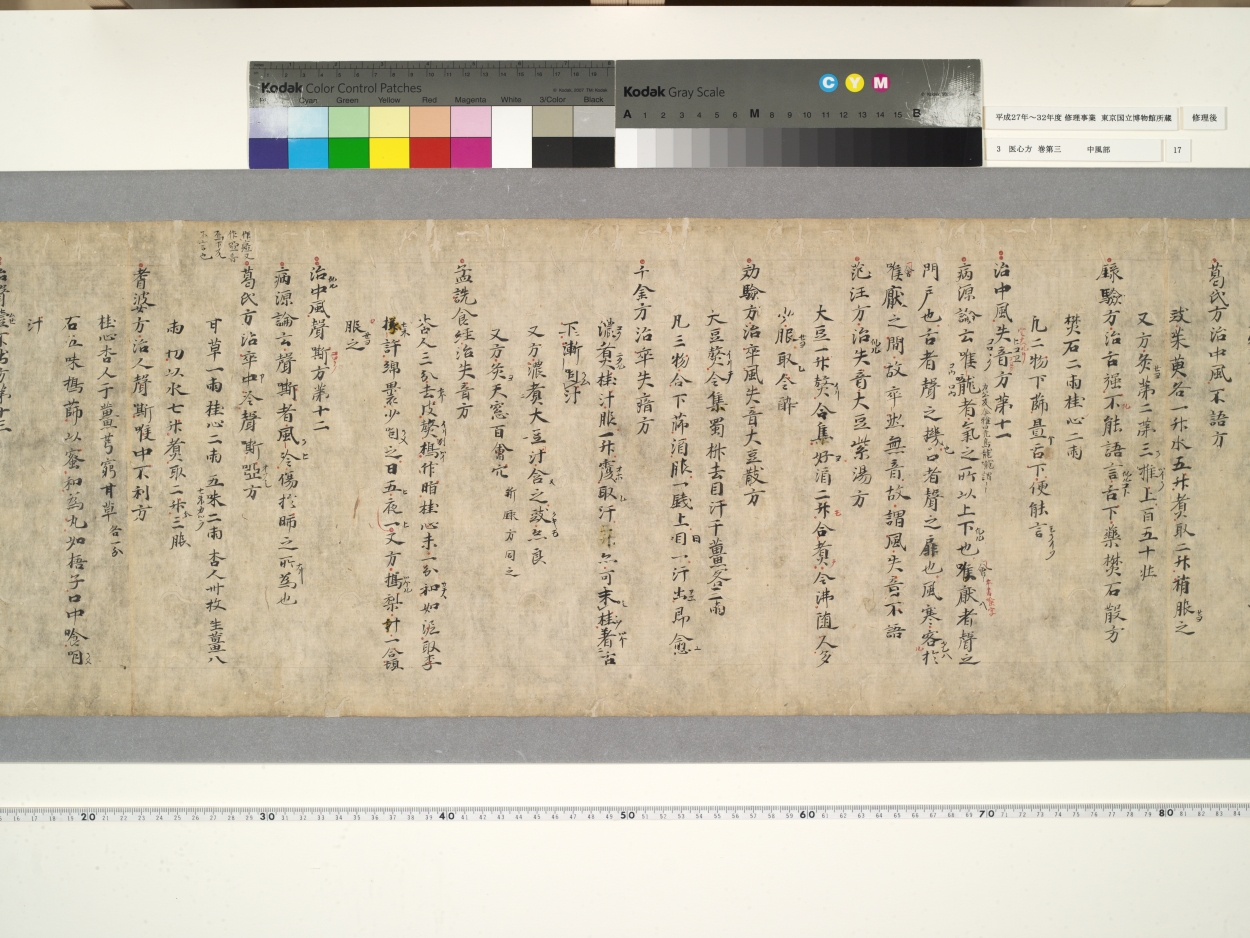 Kodak Color Control Patches
Cyan Green Yellow Red Magenta White 3/Color Black
Kodak Gray Scale
C Y M
A 1 2 3 4 5 6 M 8 9 10 11 12 13 14 15 B
平成27年〜32年度 修理事業 東京国立博物館所蔵
修理後
3 医心方 巻第三 中風部
17
葛氏方治中風不語方
豉茱萸各一升水五升煮取二升稍服之
又方灸第二第三椎上百五十壯
録驗方治舌強不能語言舌下藥樊石散方
樊石二兩桂心二兩
凡二物下篩置舌下便能言
治中風失音方第十一
病源論云喉嚨者氣之所以上下也喉厭者聲之
門戶也舌者聲之機口者聲之扉也風寒客於
喉厭之間故卒然無音故謂風失音不語
范汪方治失音大豆紫湯方
大豆一升熬令焦好酒二升合煮令沸隨人多
少服取令醉
効驗方治卒風失音大豆散方
大豆熬令焦蜀椒去目汗干薑各二兩
凡三物合下篩酒服一錢上日一汗出即愈
千金方治卒失瘖方
濃煮桂汁服一升覆取汗亦可末桂著舌
下漸嚥汁
又方濃煮大豆汁含之豉亦良
又方灸天窓百會穴
新録方同之
孟詵食經治失音方
杏人三分去皮熬搗作脂桂心末一分和如泥取李
核許綿裹少咽之日五夜一又方搗梨汁一合頓
服之
治中風聲嘶方第十二
病源論云聲嘶者風冷傷於肺之所為也
葛氏方治卒中冷聲嘶啞方
甘草一兩桂心二兩五味二兩杏人卅枚生薑八
兩切以水七升煮取二升三服
耆婆方治人聲嘶喉中不利方
桂心杏人干薑芎窮甘草各一分
右五味搗篩以蜜和為丸如梧子口中含咽
汁
20 30 40 50 60 70 80